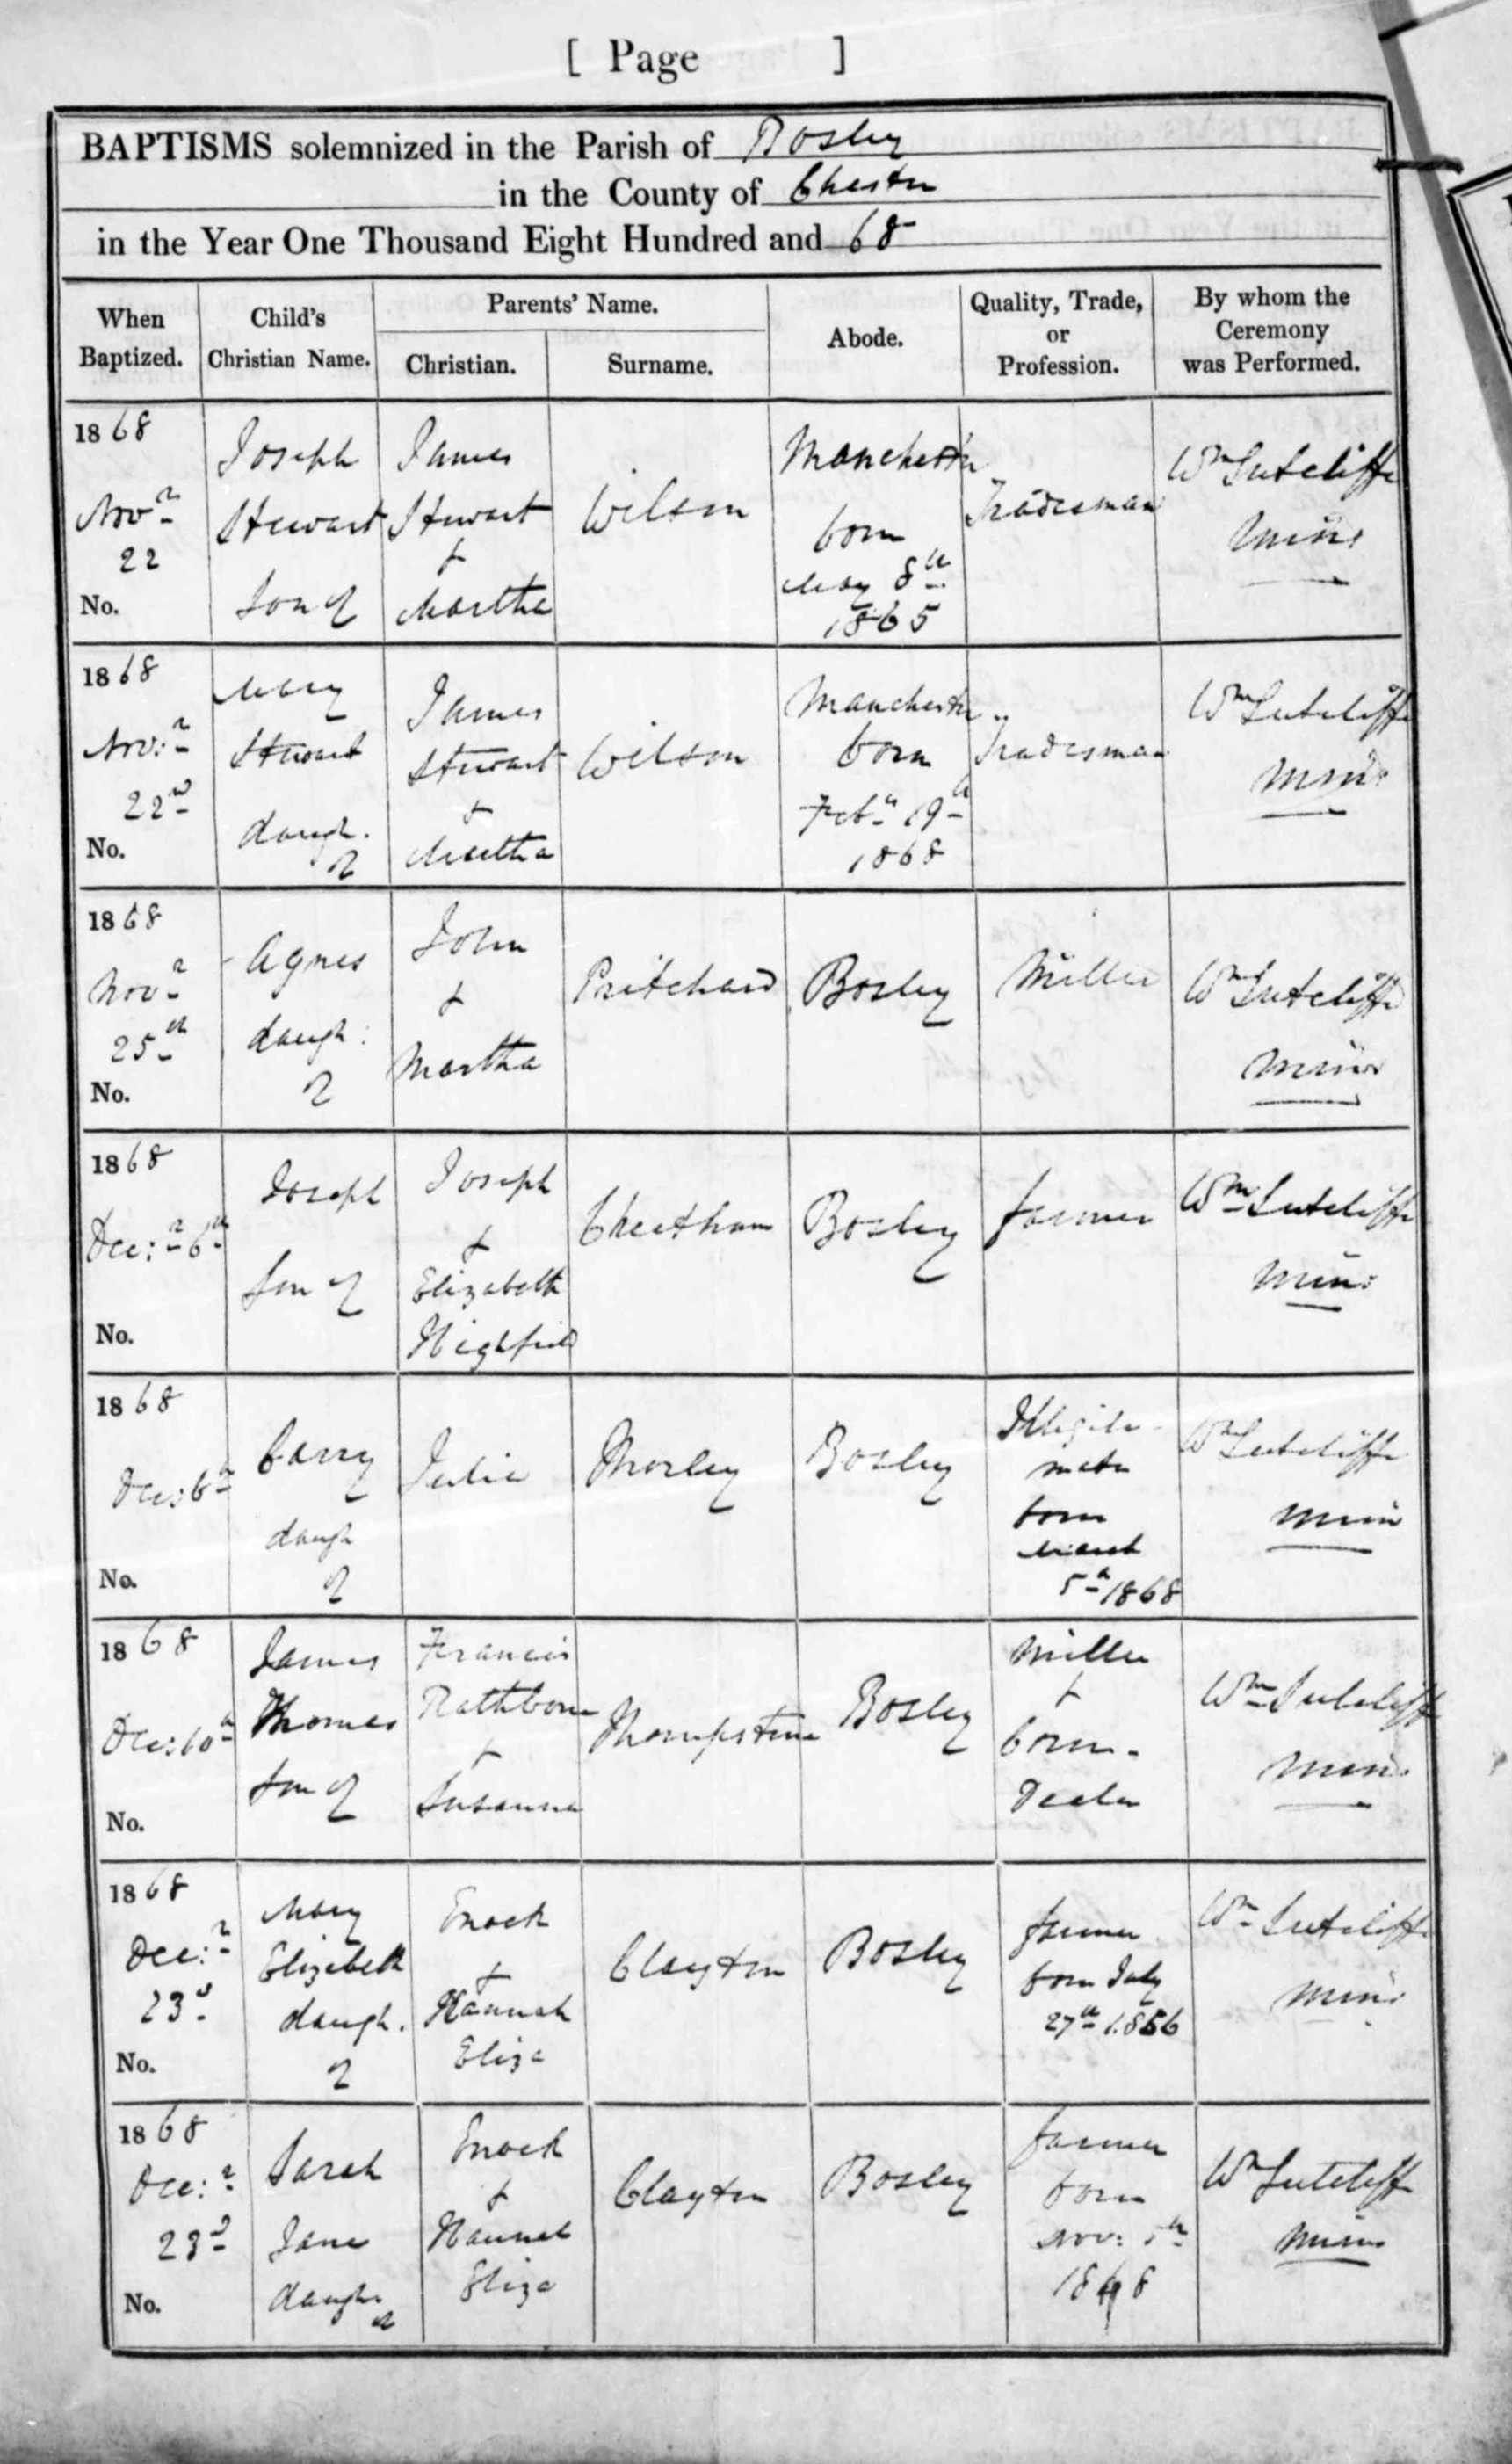 [ Page ]
BAPTISMS solemnized in the Parish of Bosley
in the County of Chester
in the Year One Thousand Eight Hundred and 68
When Baptized.
Child's Christian Name.
Parents' Name.
Christian.
Surname.
Abode.
Quality, Trade, or Profession.
By whom the Ceremony was Performed.
1868
Novr
22
No.
Joseph
Stewart
Son of
James
Stewart
&
Martha
Wilson
Manchester
born
May 8th
1865
Tradesman
Wm Sutcliffe
Minr
1868
Nov:r
22nd
No.
Mary
Stewart
daugh.
of
James
Stewart
&
Martha
Wilson
Manchester
born
Feby 19th
1868
Tradesman
Wm Sutcliffe
Minr
1868
Novr
25th
No.
Agnes
daugh:
of
John
&
Martha
Pritchard
Bosley
Miller
Wm Sutcliffe
Minr
1868
Dec:r 6th
No.
Joseph
Son of
Joseph
&
Elizabeth
Highfield
Cheetham
Bosley
farmer
Wm Sutcliffe
Min:
1868
Dec: 6th
No.
Carry
daugh
of
Julia
Morley
Bosley
Illegiti-
mate
born
March
5th 1868
Wm Sutcliffe
Min
1868
Dec: 10th
No.
James
Thomas
Son of
Francis
Rathbone
&
Susanna
Thompstone
Bosley
Miller
&
Corn-
Dealer
Wm Sutcliffe
Min.
1868
Dec:r
23d
No.
Mary
Elizabeth
daugh.
of
Enoch
&
Hannah
Eliza
Clayton
Bosley
farmer
born July
27th 1866
Wm Sutcliffe
Minr
1868
Dec:r
23d
No.
Sarah
Jane
daugh.
of
Enoch
&
Hannah
Eliza
Clayton
Bosley
farmer
born
Nov: 5th
Wm Sutcliffe
Minr